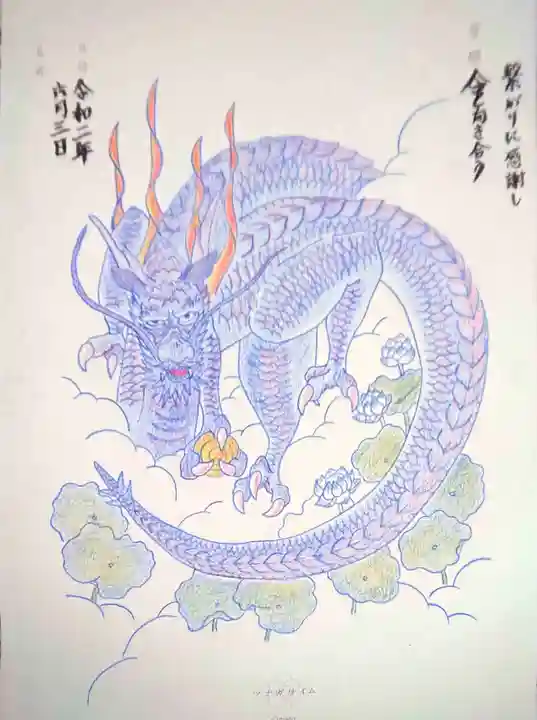 繋がりに感謝し
今向き合う
令和二年
六月三日
ツナガリイム